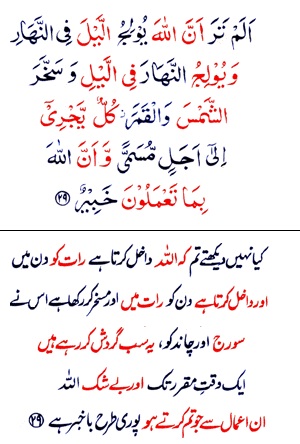 اَلَمْ تَرَ اَنَّ اللّٰهَ يُوْلِجُ الَّيْلَ فِي النَّهَارِ
وَيُوْلِجُ النَّهَارَ فِي الَّيْلِ وَ سَخَّرَ
الشَّمْسَ وَالْقَمَرَ ۡ كُلٌّ يَّجْرِيْۤ
اِلٰۤى اَجَلٍ مُّسَمًّى وَّ اَنَّ اللّٰهَ
بِمَا تَعْمَلُوْنَ خَبِيْرٌ ۲۹
کیا نہیں دیکھتے تم کہ اللہ داخل کرتا ہے رات کو دن میں
اور داخل کرتا ہے دن کو رات میں اور مسخر کر رکھا ہے اس نے
سورج اور چاند کو، یہ سب گردش کر رہے ہیں
ایک وقتِ مقرر تک اور بے شک اللہ
ان اعمال سے جو تم کرتے ہو پوری طرح باخبر ہے ۲۹